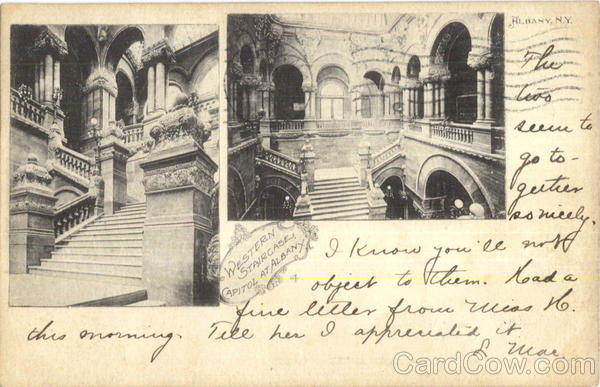 ALBANY, N.Y.
The
two
seem to
go to-
geether
so nicely.
WESTERN
STAIRCASE,
CAPITOL AT ALBANY
I know you'll not
object to them. Had a
fine letter from Miss H.
this morning. Tell her I appreciated it
Mae.
CardCow.com